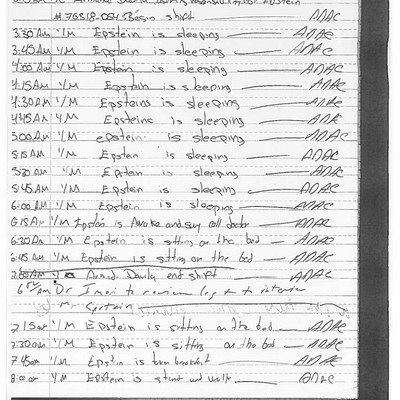 # 76318-054 Begin shift ADAC
3:30 AM I/M Epstein is sleeping ADAC
3:45 AM I/M Epstein is sleeping ADAC
4:00 AM I/M Epstein is sleeping ADAC
4:15 AM I/M Epstein is sleeping ADAC
4:30 AM I/M Epsteins is sleeping ADAC
4:45 AM I/M Epsteins is sleeping ADAC
5:00 AM I/M epstein is sleeping ADAC
5:15 AM I/M Epstein is sleeping ADAC
5:30 AM I/M Epstein is sleeping ADAC
5:45 AM I/M Epstein is sleeping ADAC
6:00 AM I/M Epstein is sleeping ADAC
6:15 AM I/M Epstein is Awake and say call doctor ADAC
6:30 AM I/M Epstein is sitting on the bed ADAC
6:45 AM I/M Epstein is sitting on the bed ADAC
7:00 AM end shift ADAC
Dr to review log to
Mr Epstein
7:15 am I/M Epstein is sitting on the bed ADAC
7:30 am I/M Epstein is sitting on the bed ADAC
7:45 am I/M Epstein is ADAC
8:00 am I/M Epstein is and ADAC